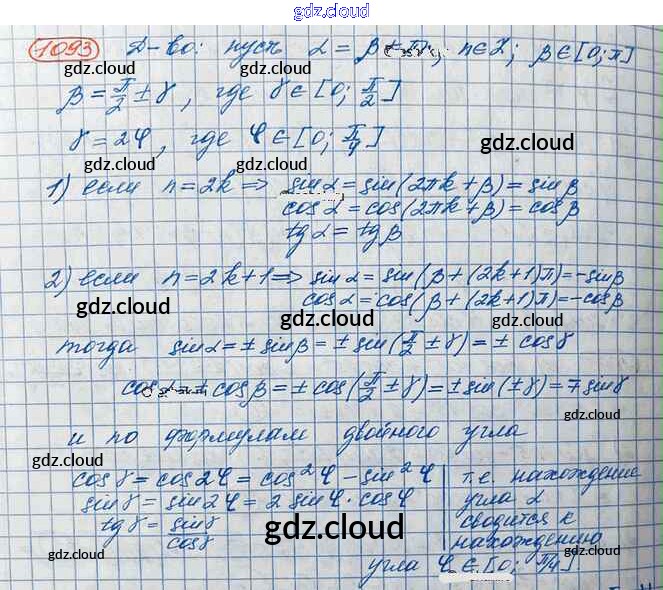 gdz.cloud
1093 Д-во: пусть α = β + πn, n∈Z; β∈[0;π]
gdz.cloud
β = π/2 ± γ, где γ∈[0; π/2]
gdz.cloud
γ = 2φ, где φ∈[0; π/4]
gdz.cloud
gdz.cloud
1) если n=2k => sin α = sin(2πk+β) = sin β
cos α = cos(2πk+β) = cos β
tg α = tg β
gdz.cloud
2) если n=2k+1 => sin α = sin(β+(2k+1)π) = -sin β
cos α = cos(β+(2k+1)π) = -cos β
gdz.cloud
gdz.cloud
тогда sin α = ± sin β = ± sin(π/2 ± γ) = ± cos γ
gdz.cloud
cos α = ± cos β = ± cos(π/2 ± γ) = ± sin(±γ) = ∓ sin γ
и по формулам двойного угла
gdz.cloud
gdz.cloud
cos γ = cos 2φ = cos²φ - sin²φ
sin γ = sin 2φ = 2 sin φ · cos φ
tg γ = sin γ / cos γ
т.е. нахождение
угла α
сводится к
нахождению
угла φ ∈ [0; π/4]
gdz.cloud
gdz.cloud
gdz.cloud
gdz.cloud